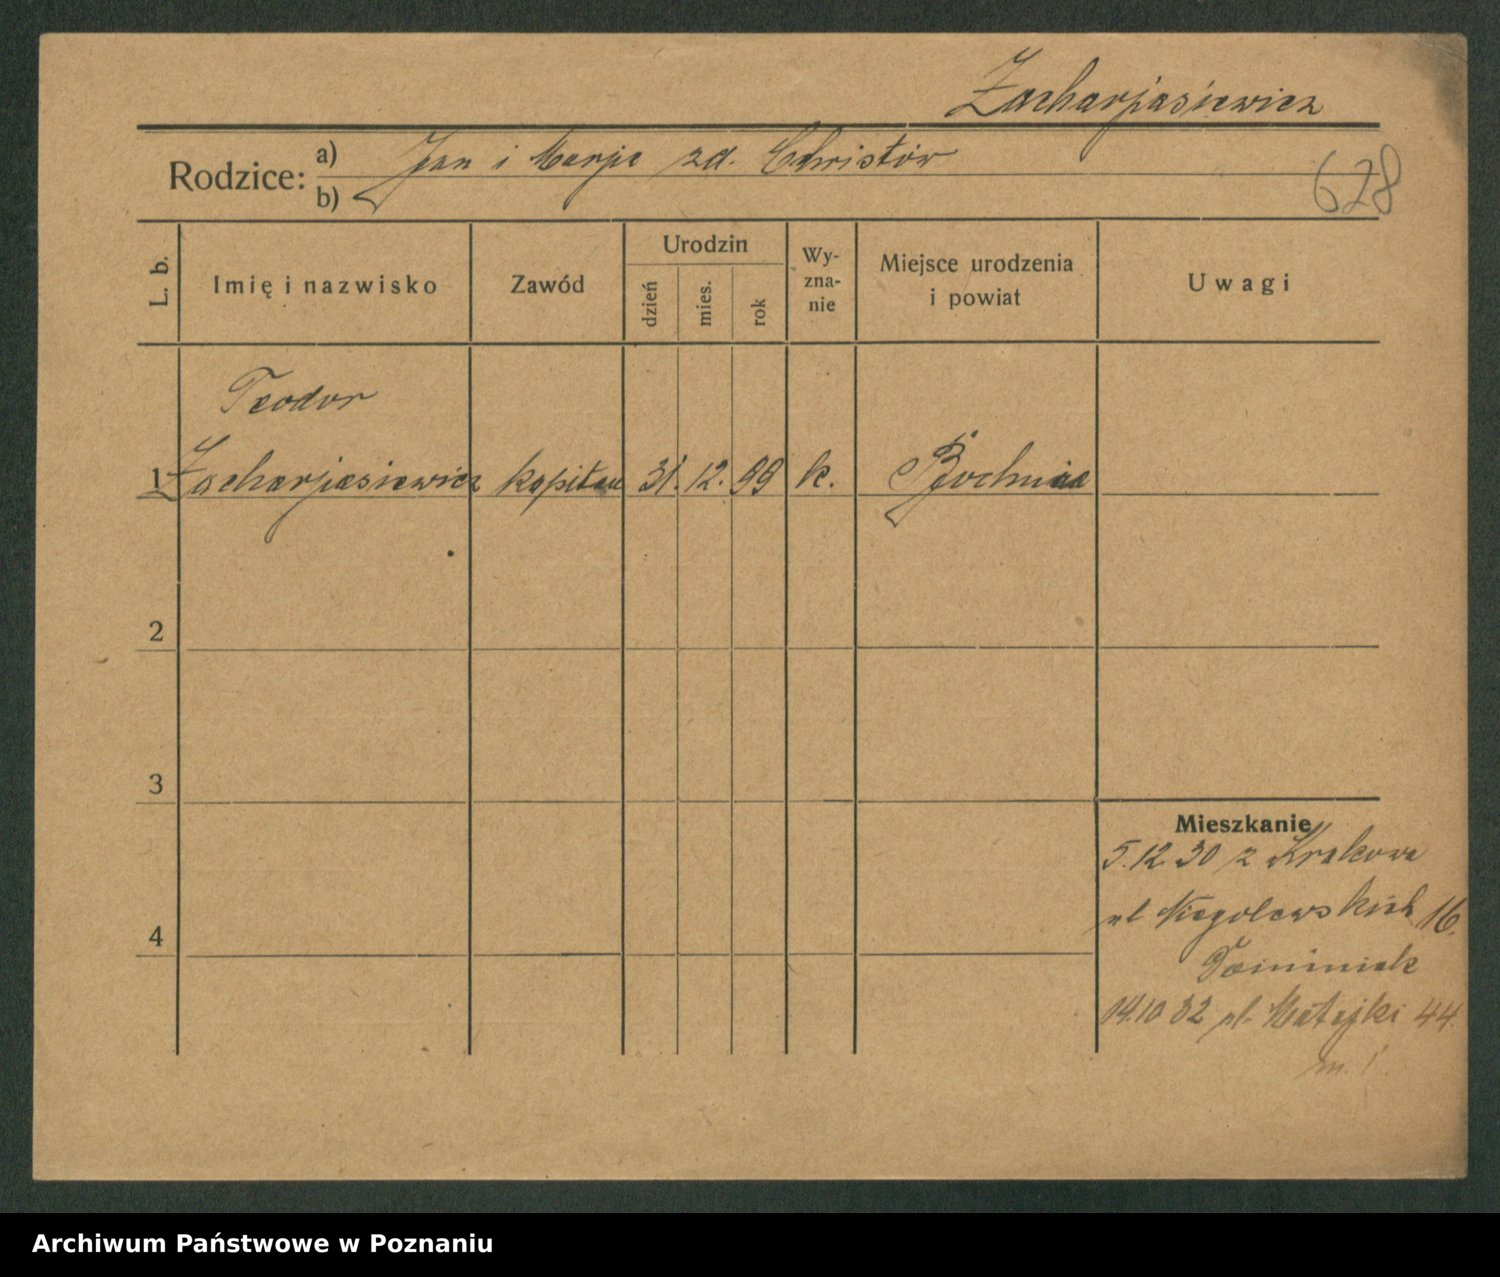 Zacharjasiewicz
Rodzice: a) Jan i Marja zd. Christów
b)
678
L. b.
Imię i nazwisko
Zawód
Urodzin
dzień
mies.
rok
Wy-
zna-
nie
Miejsce urodzenia
i powiat
Uwagi
Teodor
1 Zacharjasiewicz kapitan 31. 12. 99 k. Bochnia
2
3
4
Mieszkanie
5.12 30 z Krakowa
ul Niegolewskich 16.
Dominiak
14.10 32 ul. Matejki 44.
m. 1.
Archiwum Państwowe w Poznaniu